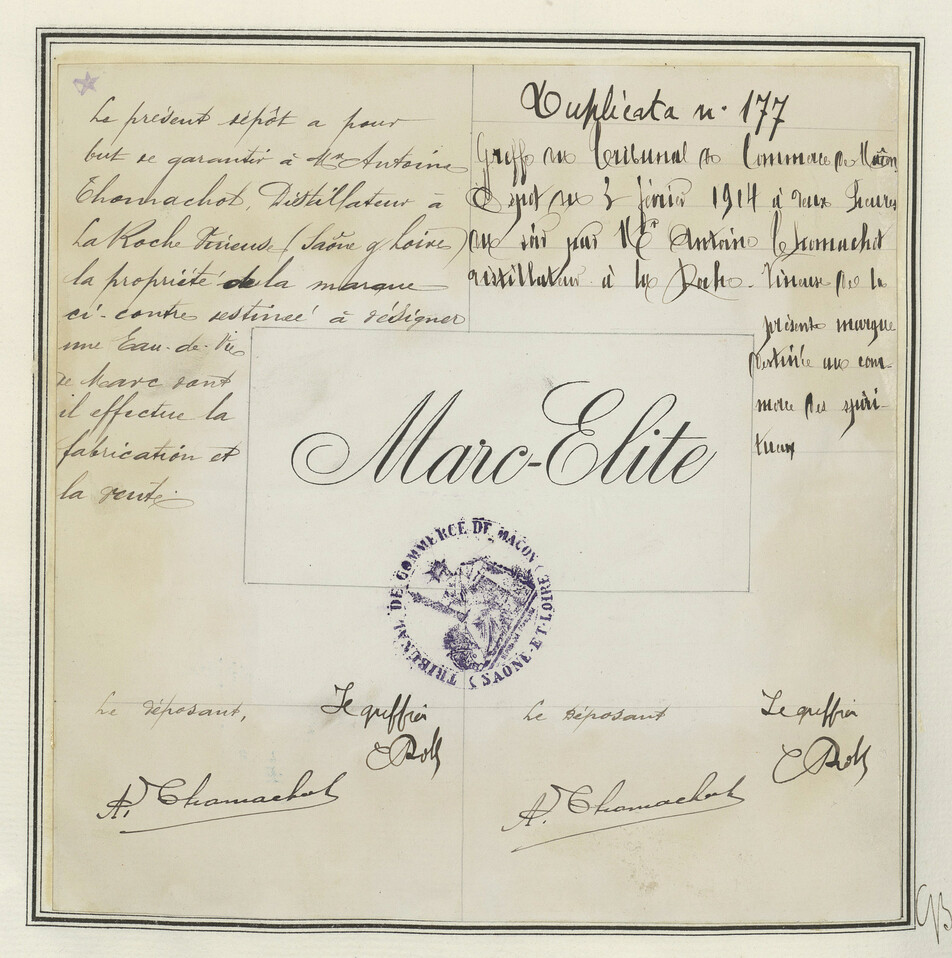 Le présent dépôt a pour
but de garantir à Mr Antoine
Chomachot, Distillateur à
La Roche Vineuse (Saône & Loire)
la propriété de la marque
ci-contre destinée à désigner
une Eau-de-Vie
de Marc dont
il effectue la
fabrication et
la vente.
Duplicata n. 177
Greffe du Tribunal de Commerce de Mâcon
Dépôt du 2 février 1914 à deux heures
du soir par Mr Antoine Chomachot
distillateur à la Roche-Vineuse de la
présente marque
destinée au com-
merce des spiri-
tueux
Marc-Elite
TRIBUNAL DE COMMERCE DE MACON (SAONE-ET-LOIRE)
Le déposant,
Le greffier
A. Chomachot
Le déposant
Le greffier
A. Chomachot